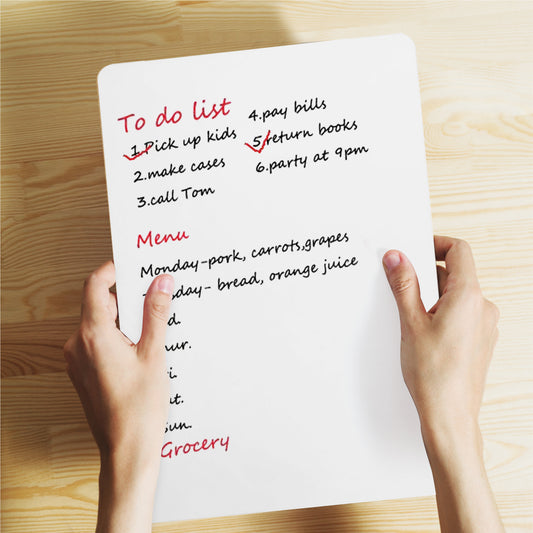 To do list
1.Pick up kids
2.make cases
3.call Tom
4.pay bills
5.return books
6.party at 9pm
Menu
Monday-pork, carrots,grapes
bread, orange juice
Grocery